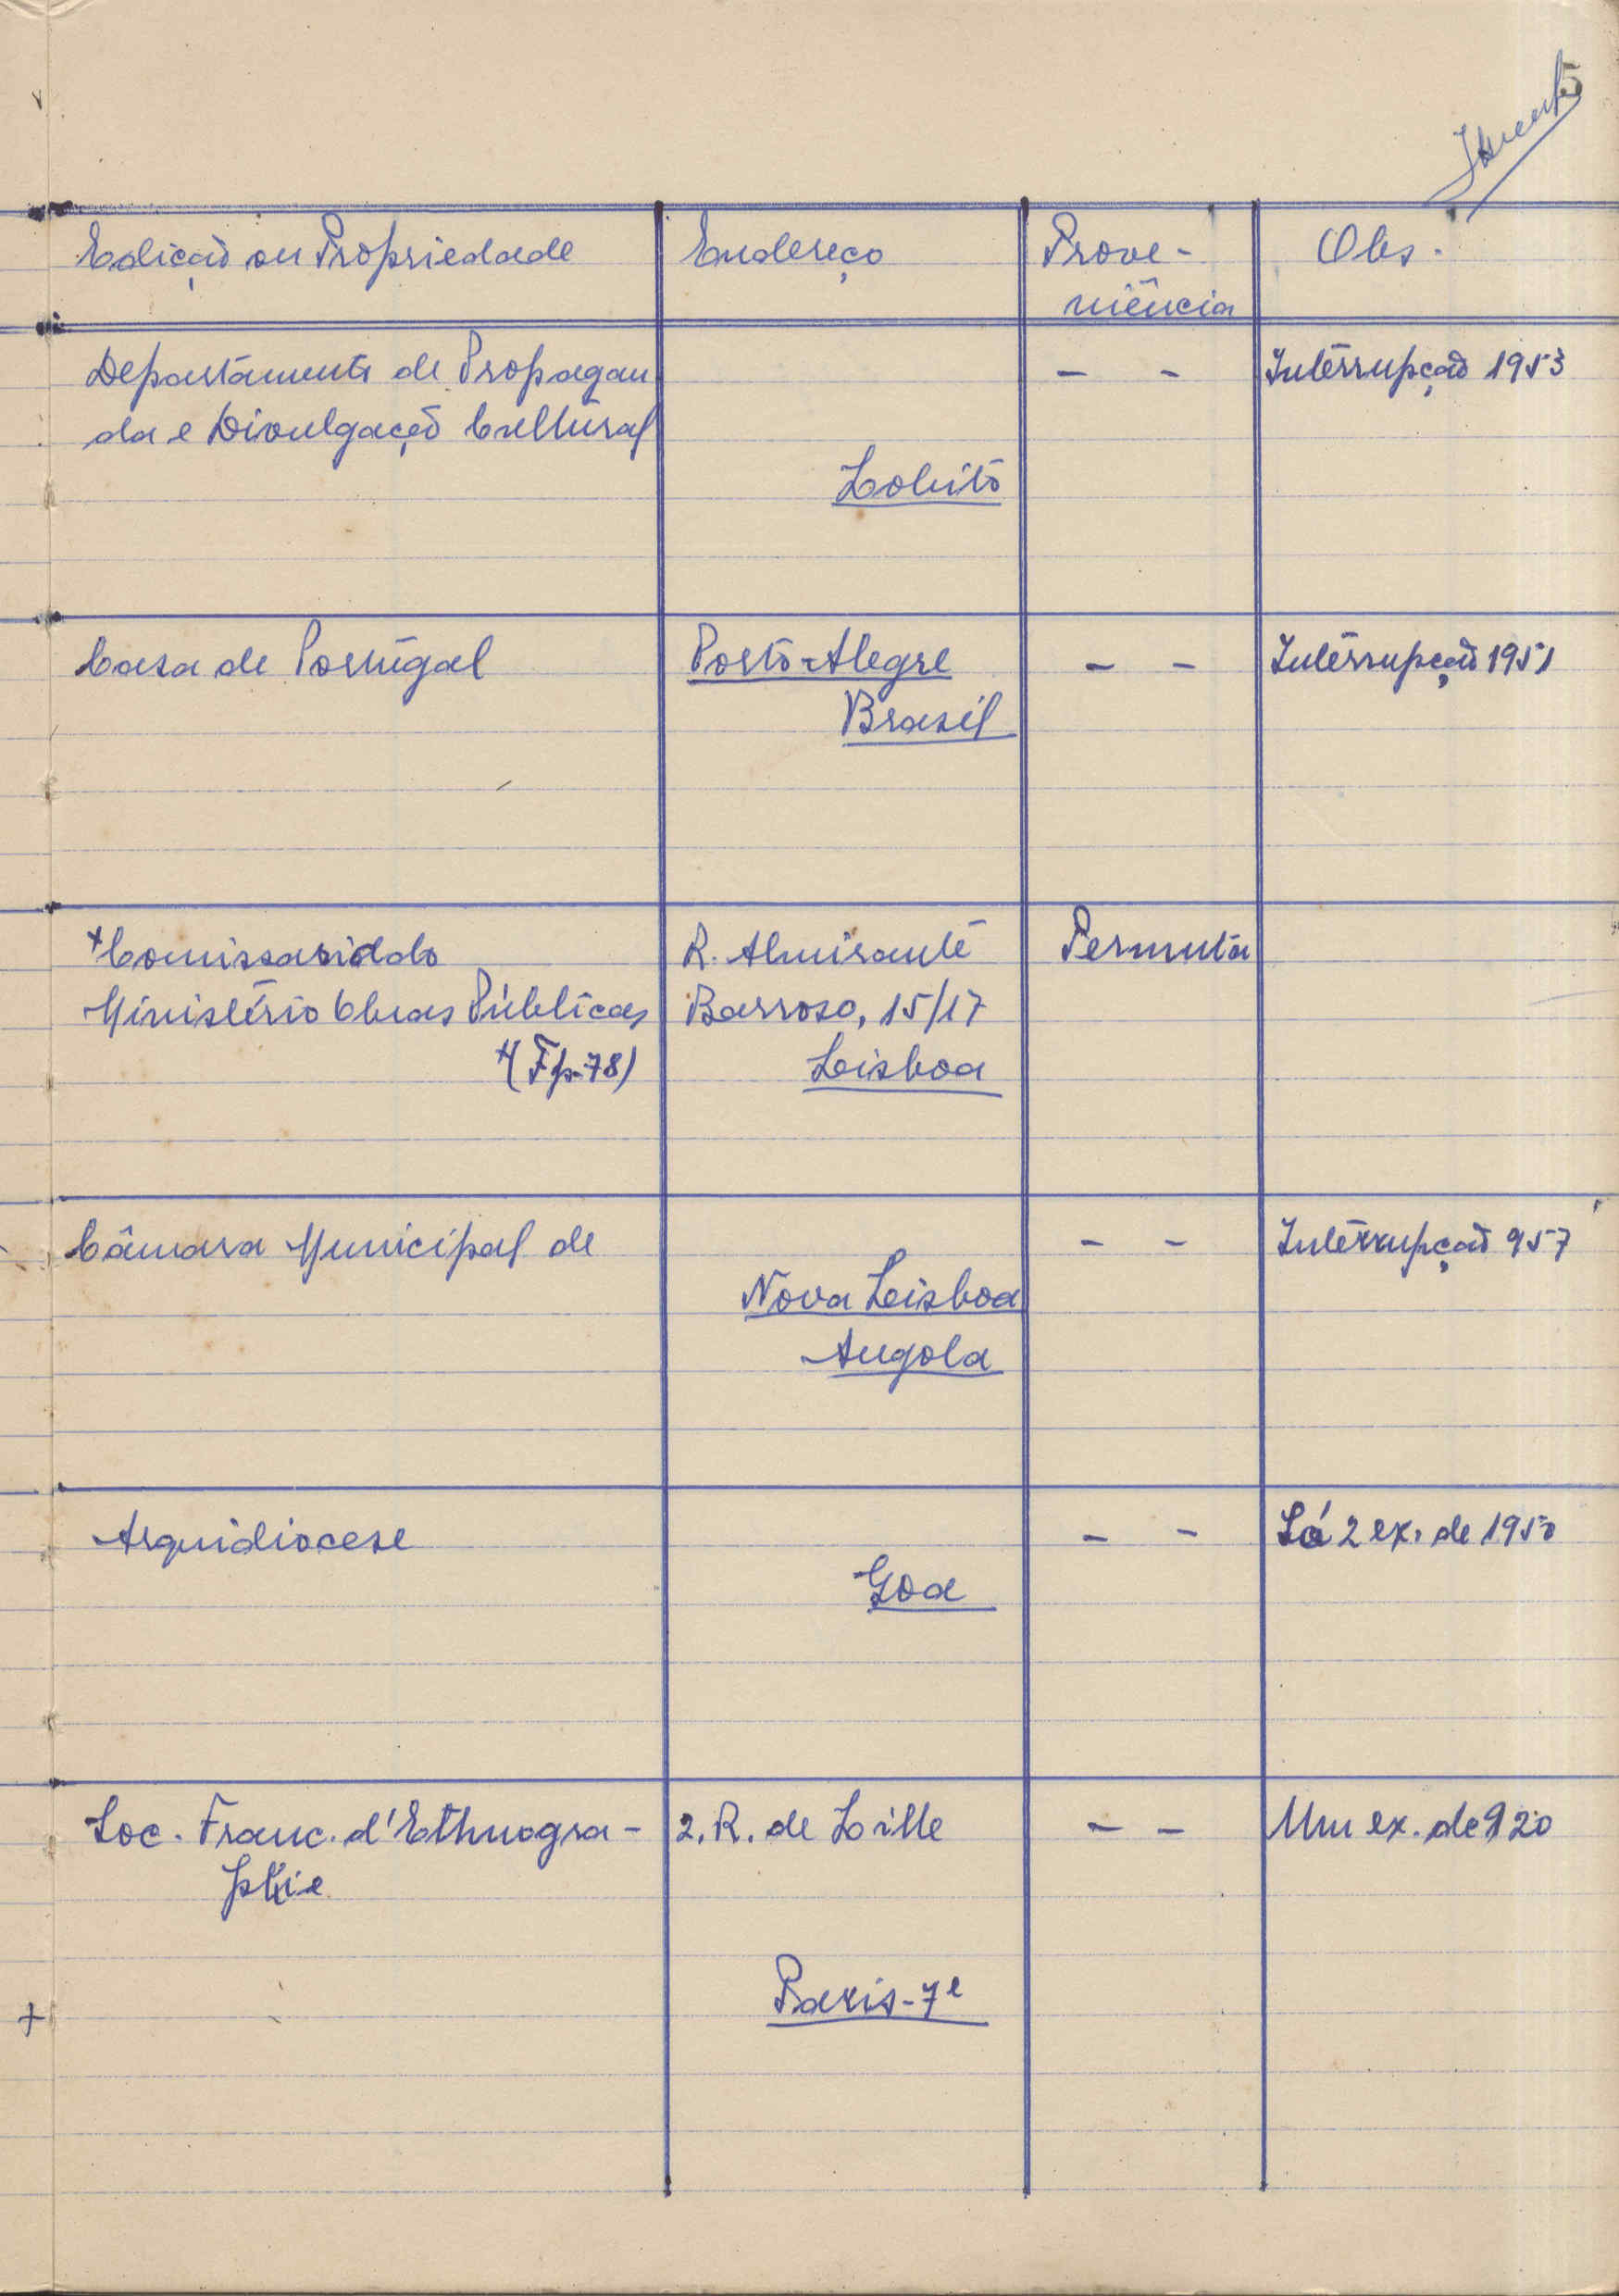 5
Edição ou Propriedade Endereço Prove- Obs.
niência
Departamento de Propagan - - Interrupção 1953
da e Divulgação Cultural
Lobito
Casa de Portugal Porto-Alegre - - Interrupção 1951
Brasil
+Comissariado R. Almirante Permuta
Ministério Obras Públicas Barroso, 15/17
+(Fp-78) Lisboa
Câmara Municipal de - - Interrupção 957
Nova Lisboa
Angola
Arquidiocese - - Só 2 ex. de 1950
Goa
Soc. Franc. d'Ethnogra- 2. R. de Lille - - Um ex. de 920
phie
Paris-7e
+